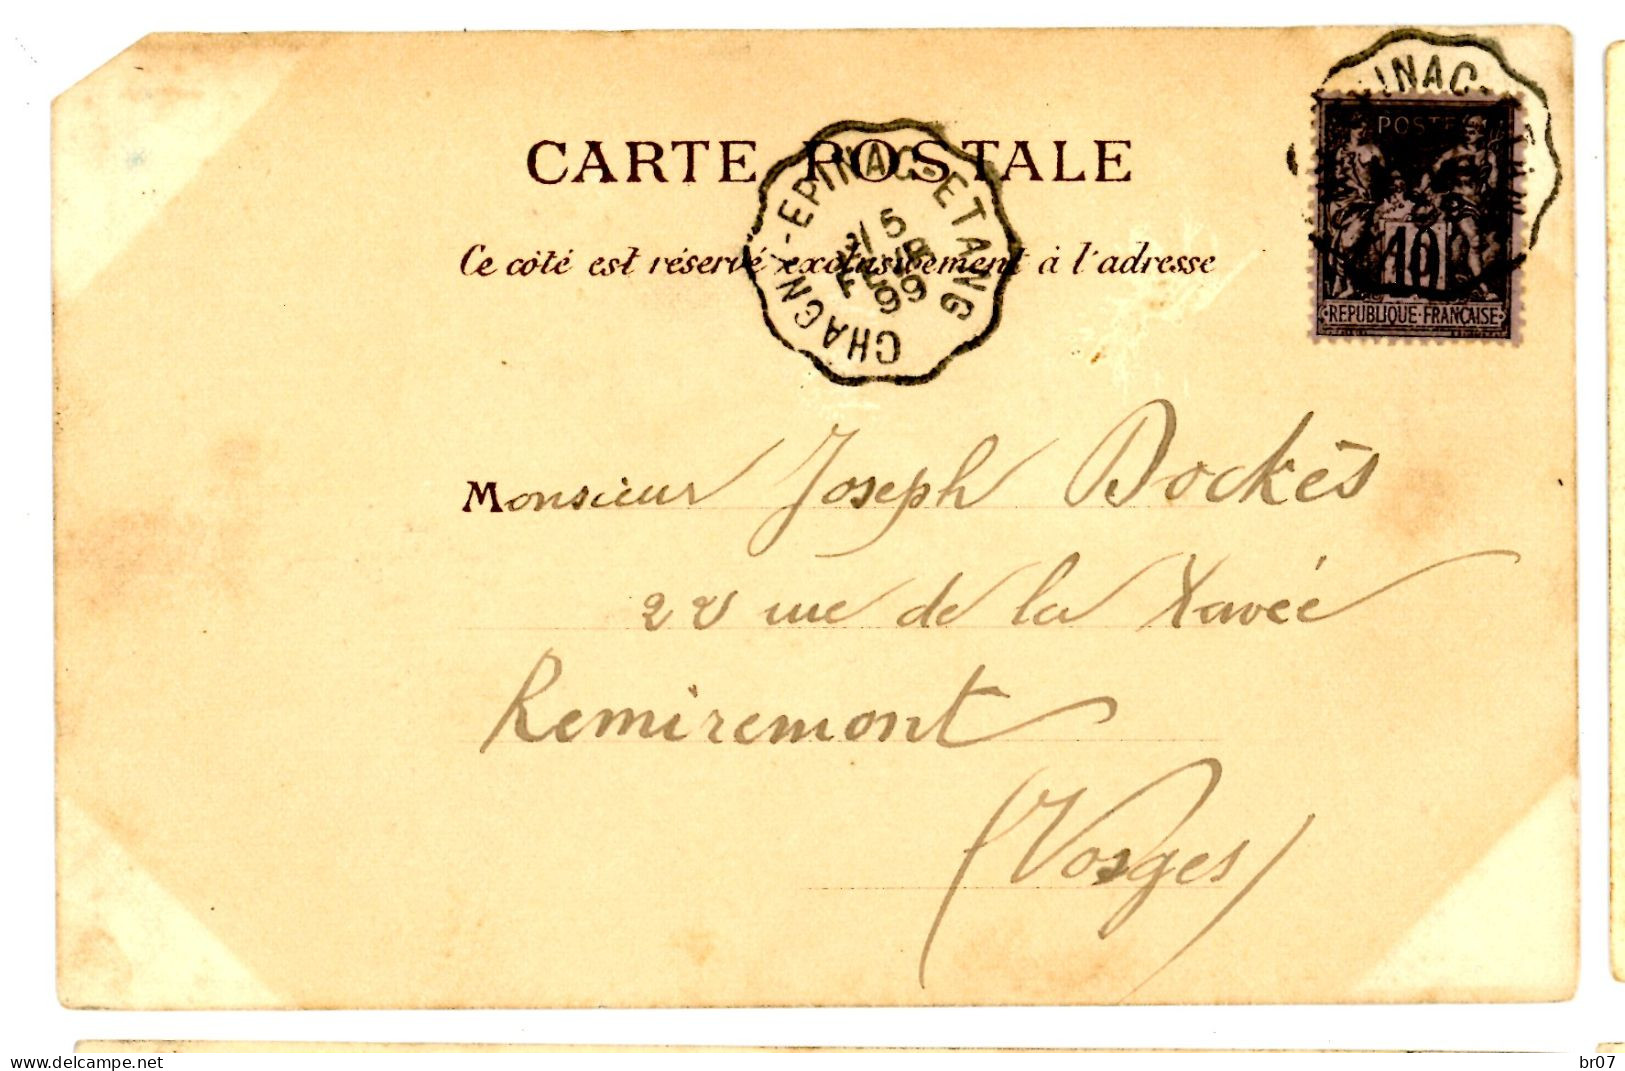 CARTE POSTALE
Ce côté est réservé exclusivement à l'adresse
CHAGN-EPINAC-ETANG
5
99
INAC-
POSTE
10
REPUBLIQUE·FRANÇAISE
Monsieur Joseph Dockès
22 rue de la Xavée
Remiremont
(Vosges)
www.delcampe.net
br07